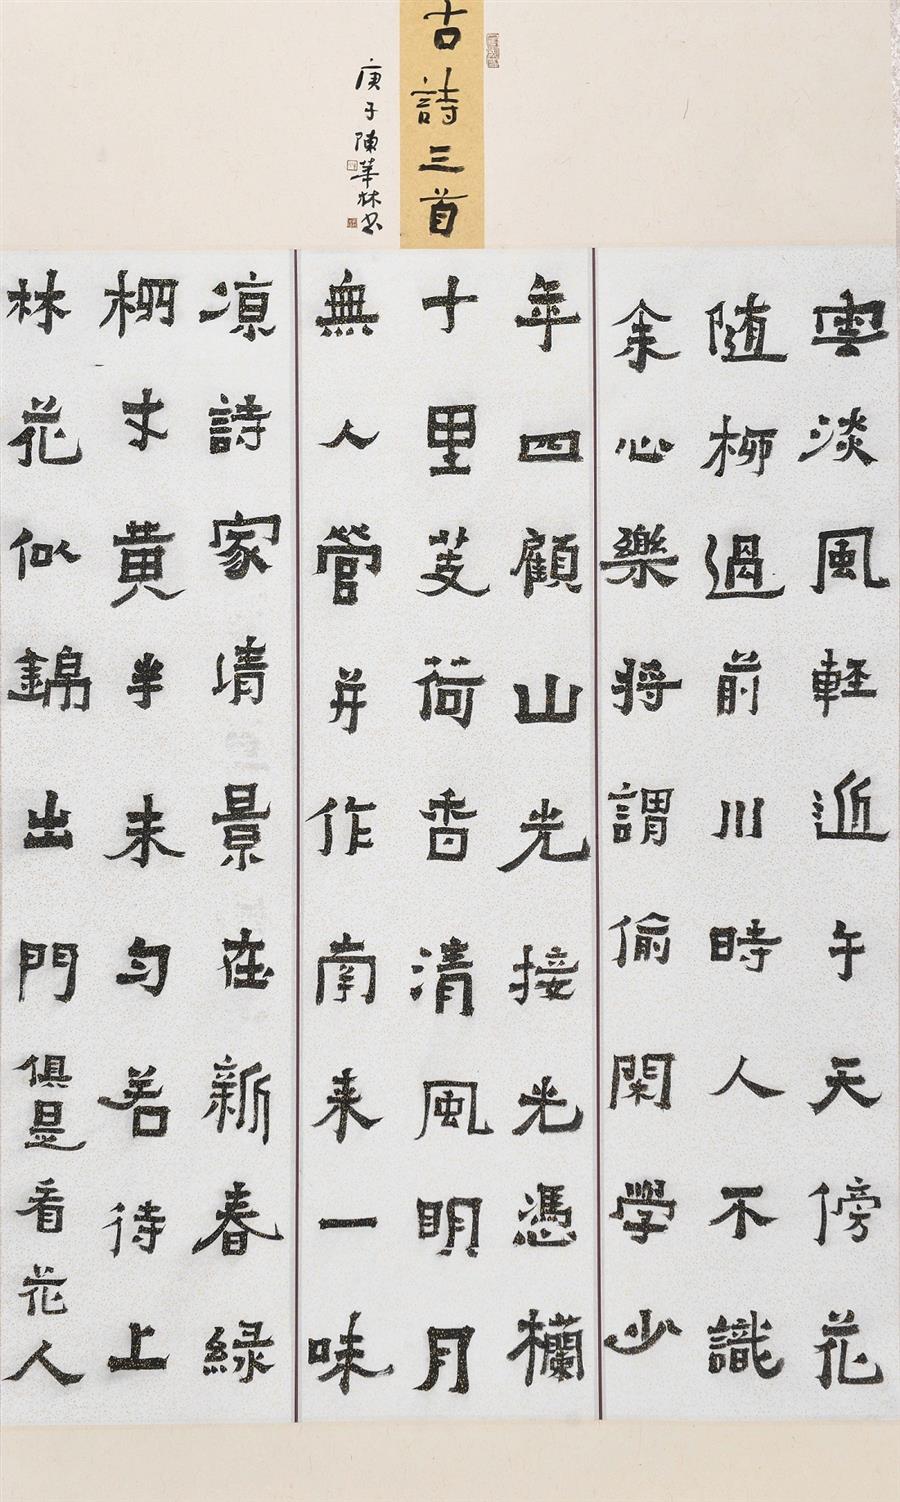 古詩三首
庚子陳華林書
雲淡風軽近午天傍花
随柳過前川時人不識
余心樂將謂偷閑學少
年四顧山光接光憑欄
十里芰荷香清風明月
無人管并作南来一味
凉詩家清景在新春緑
柳才黄半未匀若待上
林花似錦出門俱是看花人